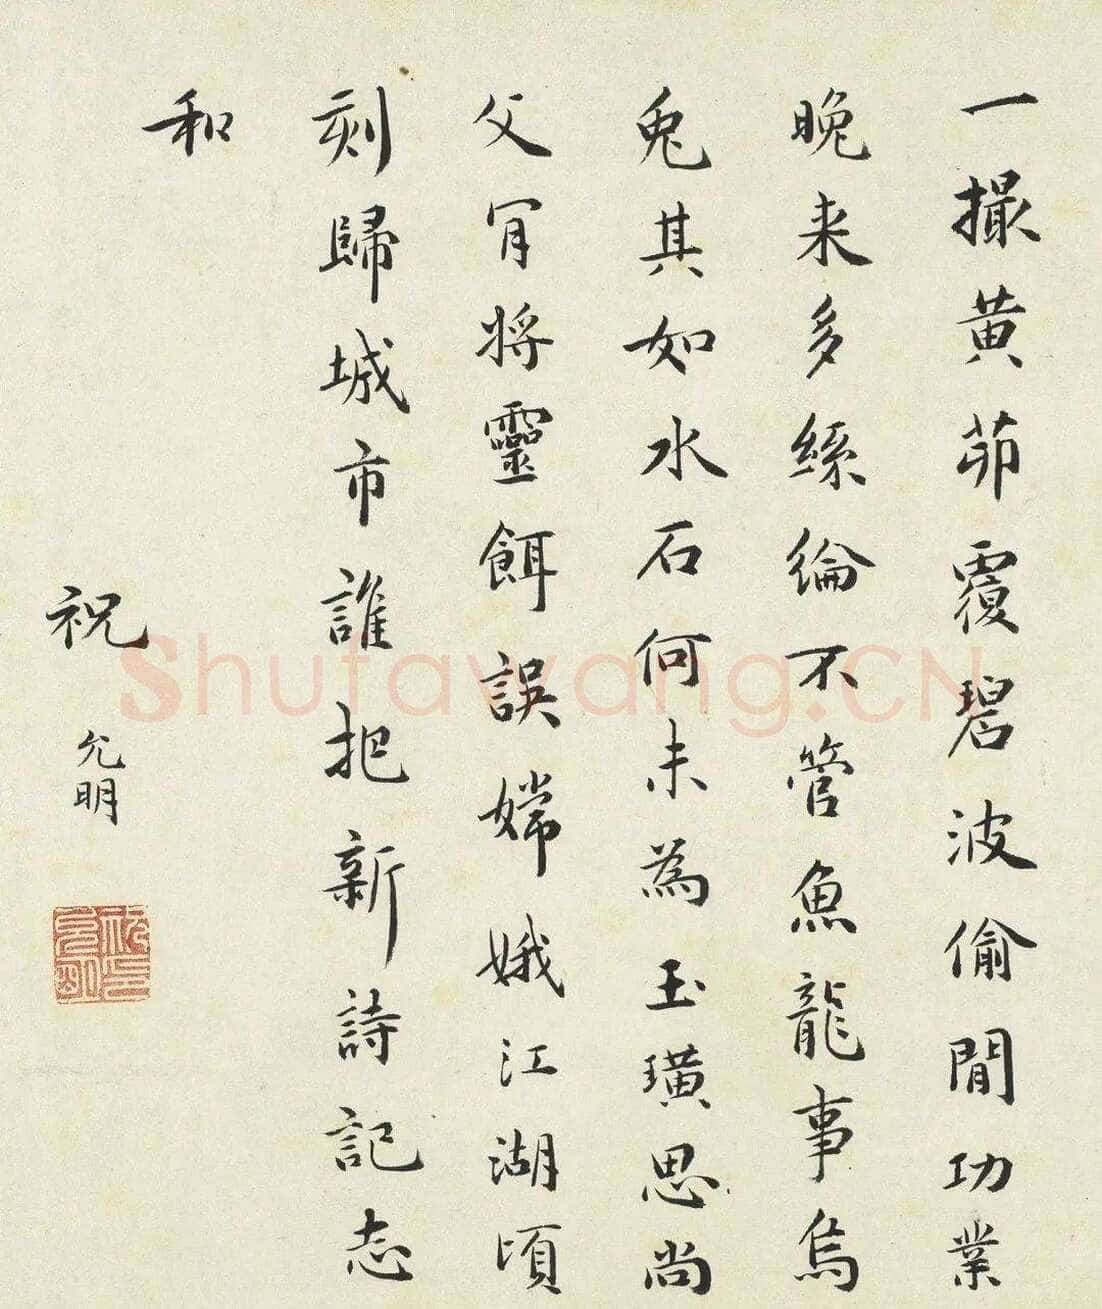 一撮黄茆覆碧波偷閒功業
晚来多絲綸不管魚龍事烏
兔其如水石何未為玉璜思尚
父肎将靈餌誤嫦娥江湖頃
刻歸城市誰把新詩記志
和
祝允明
Shufawang.CN